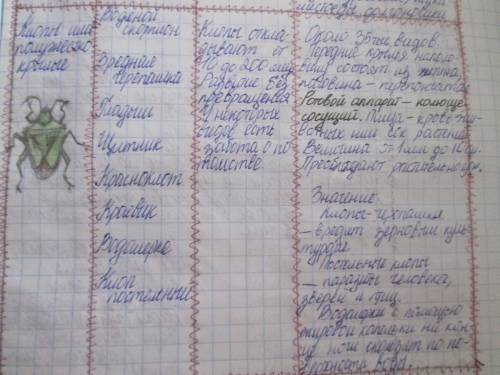 Клопы или
полужестко-
крылые
Водяной
скорпион
Вредная
черепашка
Гладыш
Щитник
Красноклоп
Краевик
Водомерка
Клоп
постельный
Клопы откла-
дывают от
10 до 200 яиц
Развитие без
превращения
У некоторых
видов есть
забота о по-
томстве.
насекое, долгоносики
Около 35 тыс видов.
Передние крылья наполо-
вину состоят из хитина,
половина - перепончатая.
Ротовой аппарат - колюще-
сосущий. Пища - кровь жи-
вотных или сок растений
Величина от 1 мм до 10 см.
Преобладают растительнояд.
Значение:
Клопы-черепашки
- вредит зерновым куль
турам.
Постельные клопы
- паразиты человека,
зверей и птиц.
Водомерки с помощью
жировой капельки на кон-
це ноги скользят по по-
верхности воды.